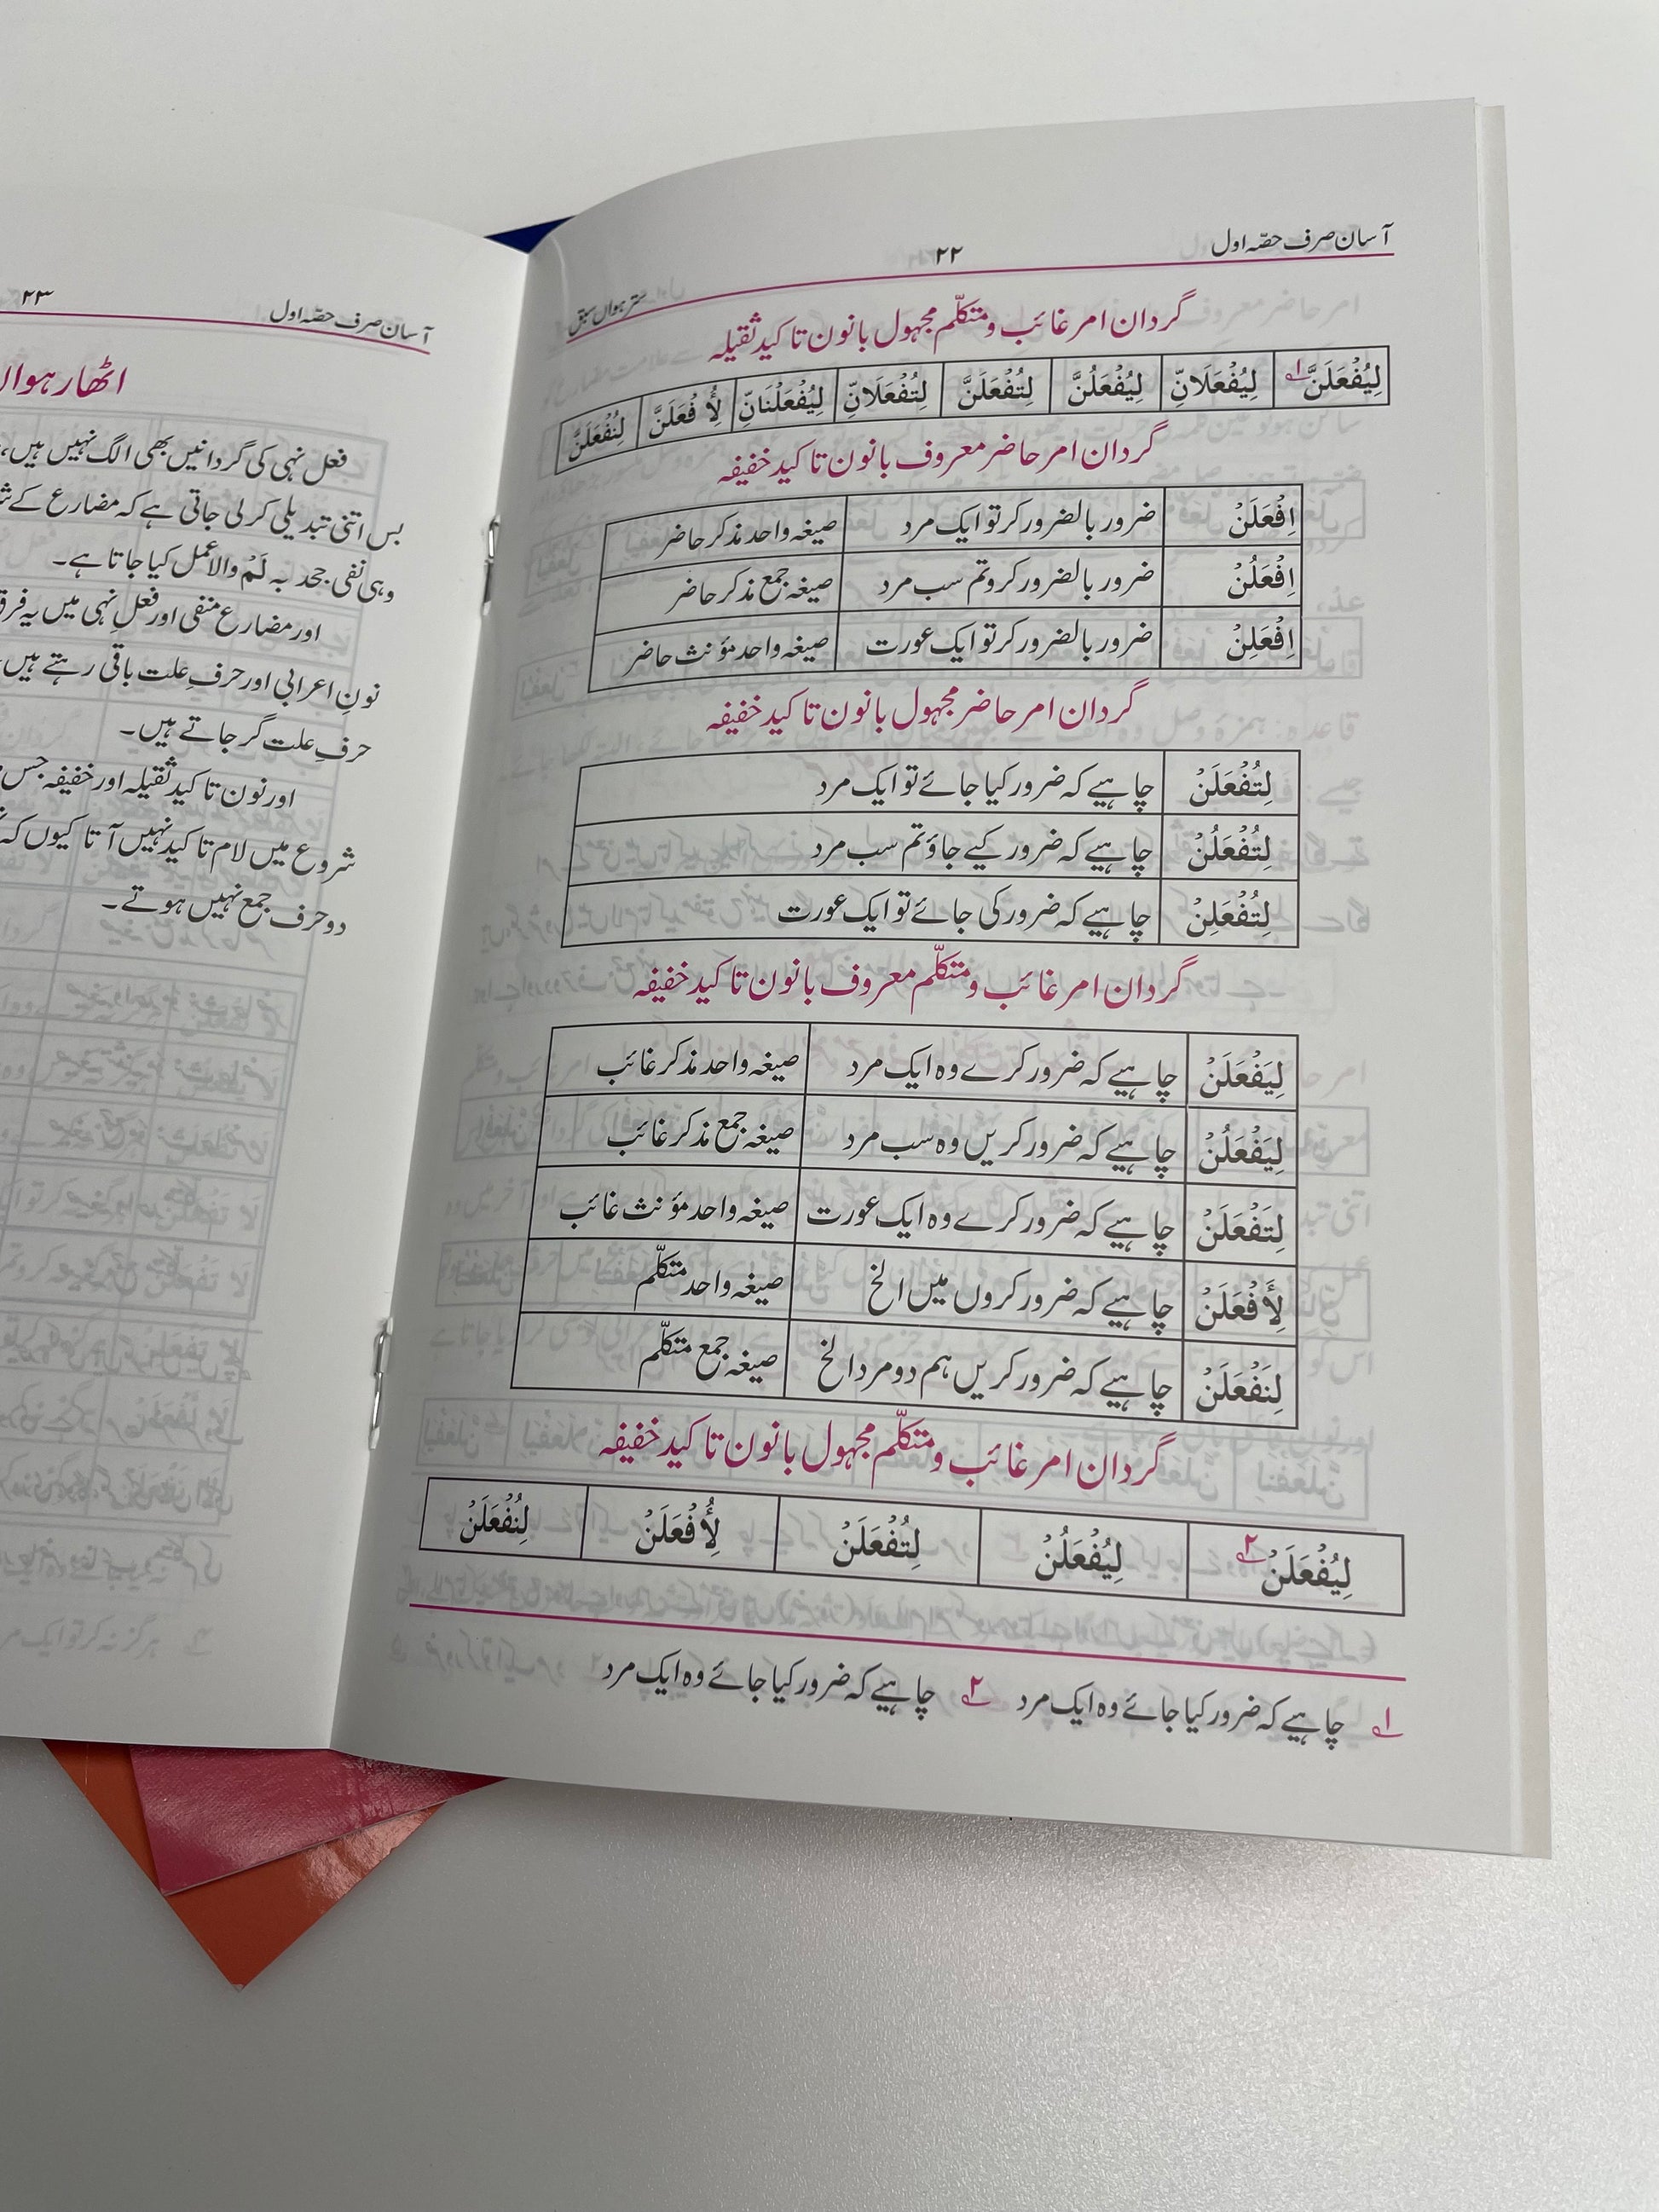 آسان صرف حصّہ اول ۲۲ سترہواں سبق
گردان امر غائب و متکلّم مجہول بانون تاکید ثقیلہ
لِیُفْعَلَنَّ ۱ لِیُفْعَلَانِّ لِیُفْعَلُنَّ لِتُفْعَلَنَّ لِتُفْعَلَانِّ لِیُفْعَلْنَانِّ لِأُفْعَلَنَّ لِنُفْعَلَنَّ
گردان امر حاضر معروف بانون تاکید خفیفہ
اِفْعَلَنْ ضرور بالضرور کر تو ایک مرد صیغہ واحد مذکر حاضر
اِفْعَلُنْ ضرور بالضرور کرو تم سب مرد صیغہ جمع مذکر حاضر
اِفْعَلِنْ ضرور بالضرور کر تو ایک عورت صیغہ واحد مؤنث حاضر
گردان امر حاضر مجہول بانون تاکید خفیفہ
لِتُفْعَلَنْ چاہیے کہ ضرور کیا جائے تو ایک مرد
لِتُفْعَلُنْ چاہیے کہ ضرور کیے جاؤ تم سب مرد
لِتُفْعَلِنْ چاہیے کہ ضرور کی جائے تو ایک عورت
گردان امر غائب و متکلّم معروف بانون تاکید خفیفہ
لِیَفْعَلَنْ چاہیے کہ ضرور کرے وہ ایک مرد صیغہ واحد مذکر غائب
لِیَفْعَلُنْ چاہیے کہ ضرور کریں وہ سب مرد صیغہ جمع مذکر غائب
لِتَفْعَلَنْ چاہیے کہ ضرور کرے وہ ایک عورت صیغہ واحد مؤنث غائب
لِأَفْعَلَنْ چاہیے کہ ضرور کروں میں الخ صیغہ واحد متکلّم
لِنَفْعَلَنْ چاہیے کہ ضرور کریں ہم دو مرد الخ صیغہ جمع متکلّم
گردان امر غائب و متکلّم مجہول بانون تاکید خفیفہ
لِیُفْعَلَنْ ۲ لِیُفْعَلُنْ لِتُفْعَلَنْ لِأُفْعَلَنْ لِنُفْعَلَنْ
۱ چاہیے کہ ضرور کیا جائے وہ ایک مرد ۲ چاہیے کہ ضرور کیا جائے وہ ایک مرد
آسان صرف حصّہ اول ۲۳
اٹھارہواں
فعل نہی کی گردانیں بھی الگ نہیں ہیں،
بس اتنی تبدیلی کر لی جاتی ہے کہ مضارع کے
وہی نفی جحد بہ لَمْ والا عمل کیا جاتا ہے۔
اور مضارع منفی اور فعلِ نہی میں یہ فرق
نونِ اعرابی اور حرفِ علت باقی رہتے ہیں
حرفِ علت گر جاتے ہیں۔
اور نون تاکید ثقیلہ اور خفیفہ جس
شروع میں لام تاکید نہیں آتا کیوں کہ
دو حرف جمع نہیں ہوتے۔